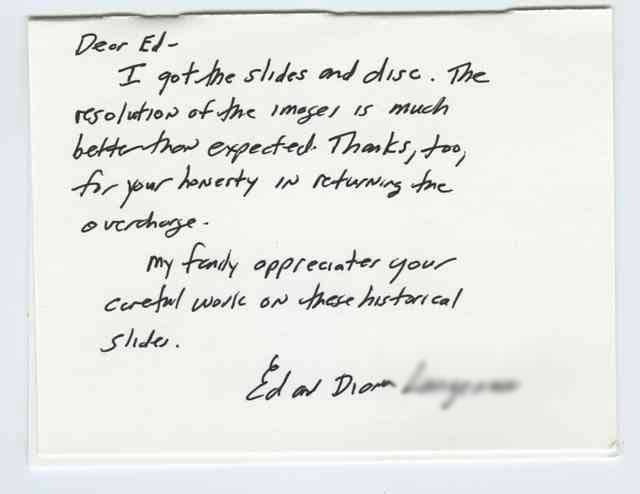 Dear Ed-
I got the slides and disc. The
resolution of the images is much
better than expected. Thanks, too,
for your honesty in returning the
overcharge.
My family appreciates your
careful work on these historical
slides.
Ed and Diana